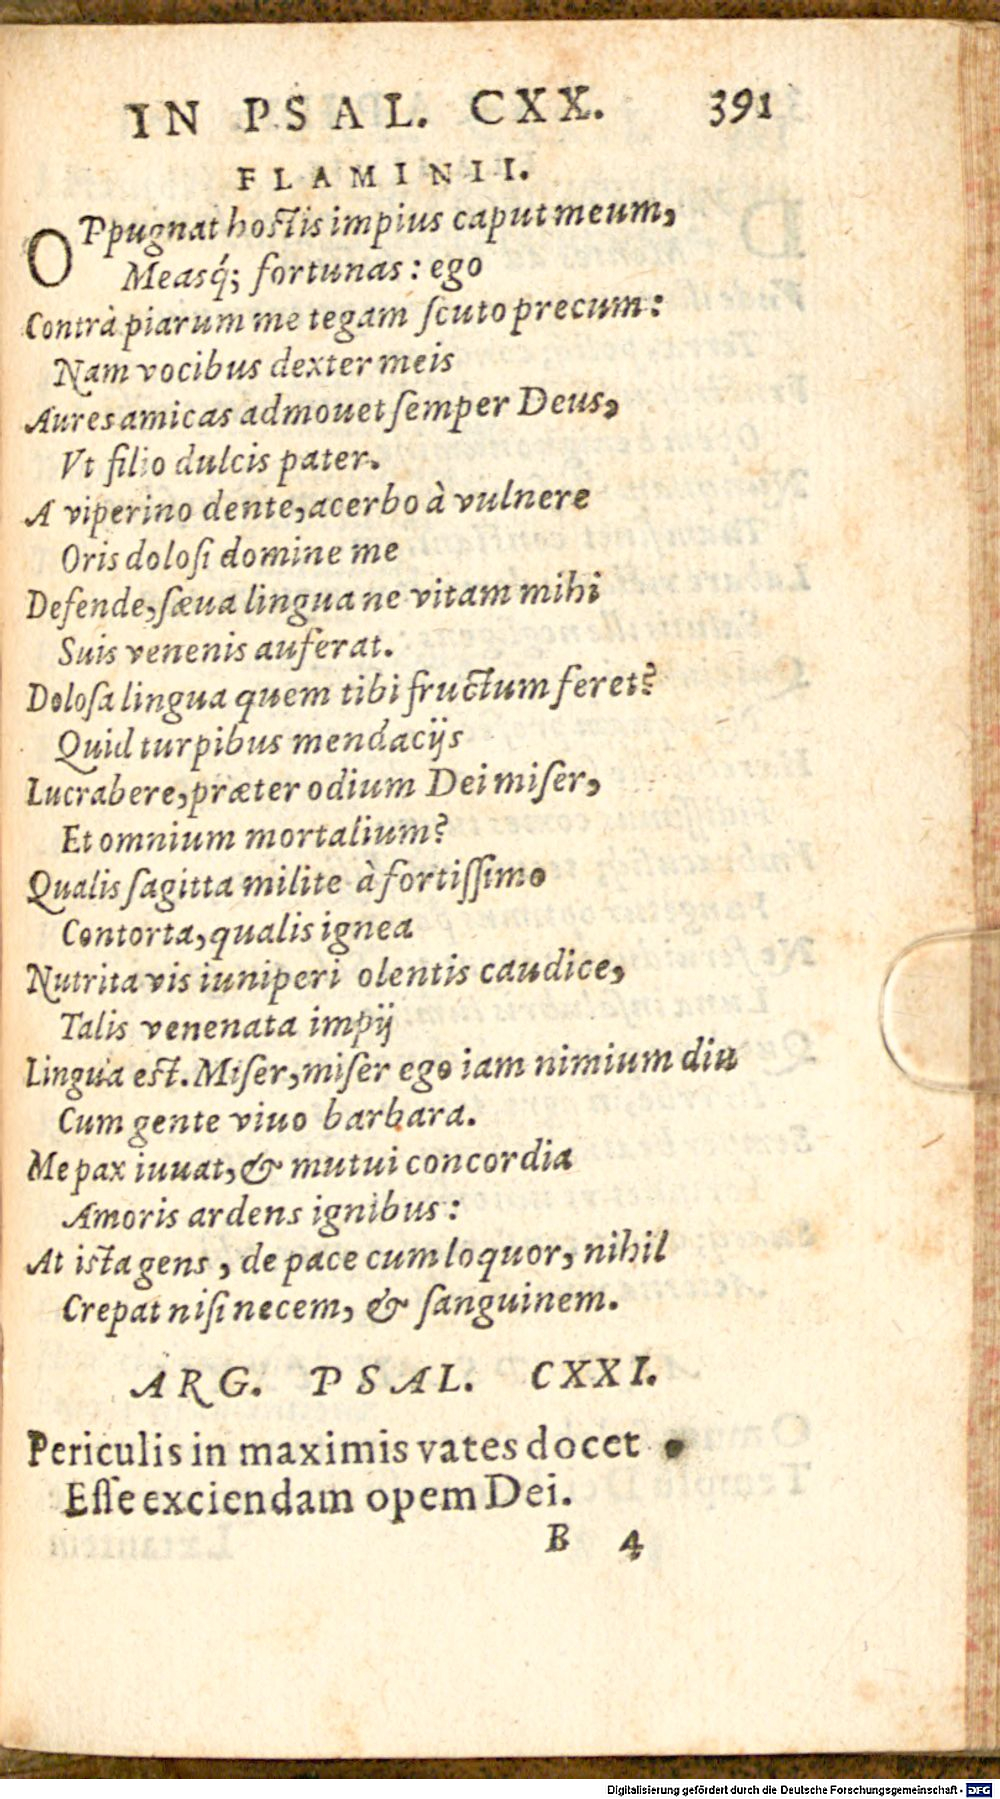 IN PSAL. CXX. 391
FLAMINII.
OPpugnat hostis impius caput meum,
Measq́; fortunas: ego
Contrà piarum me tegam ſcuto precum:
Nam vocibus dexter meis
Aures amicas admouet ſemper Deus,
Vt filio dulcis pater.
A viperino dente, acerbo à vulnere
Oris doloſi domine me
Defende, ſæua lingua ne vitam mihi
Suis venenis auferat.
Doloſa lingua quem tibi fructum feret?
Quid turpibus mendacijs
Lucrabere, præter odium Dei miſer,
Et omnium mortalium?
Qualis ſagitta milite à fortiſſimo
Contorta, qualis ignea
Nutrita vis iuniperi olentis caudice,
Talis venenata impij
Lingua est. Miſer, miſer ego iam nimium diu
Cum gente viuo barbara.
Me pax iuuat, & mutui concordia
Amoris ardens ignibus:
At ista gens, de pace cum loquor, nihil
Crepat niſi necem, & ſanguinem.
ARG. PSAL. CXXI.
Periculis in maximis vates docet
Eſſe exciendam opem Dei.
B 4
Digitalisierung gefördert durch die Deutsche Forschungsgemeinschaft - DFG